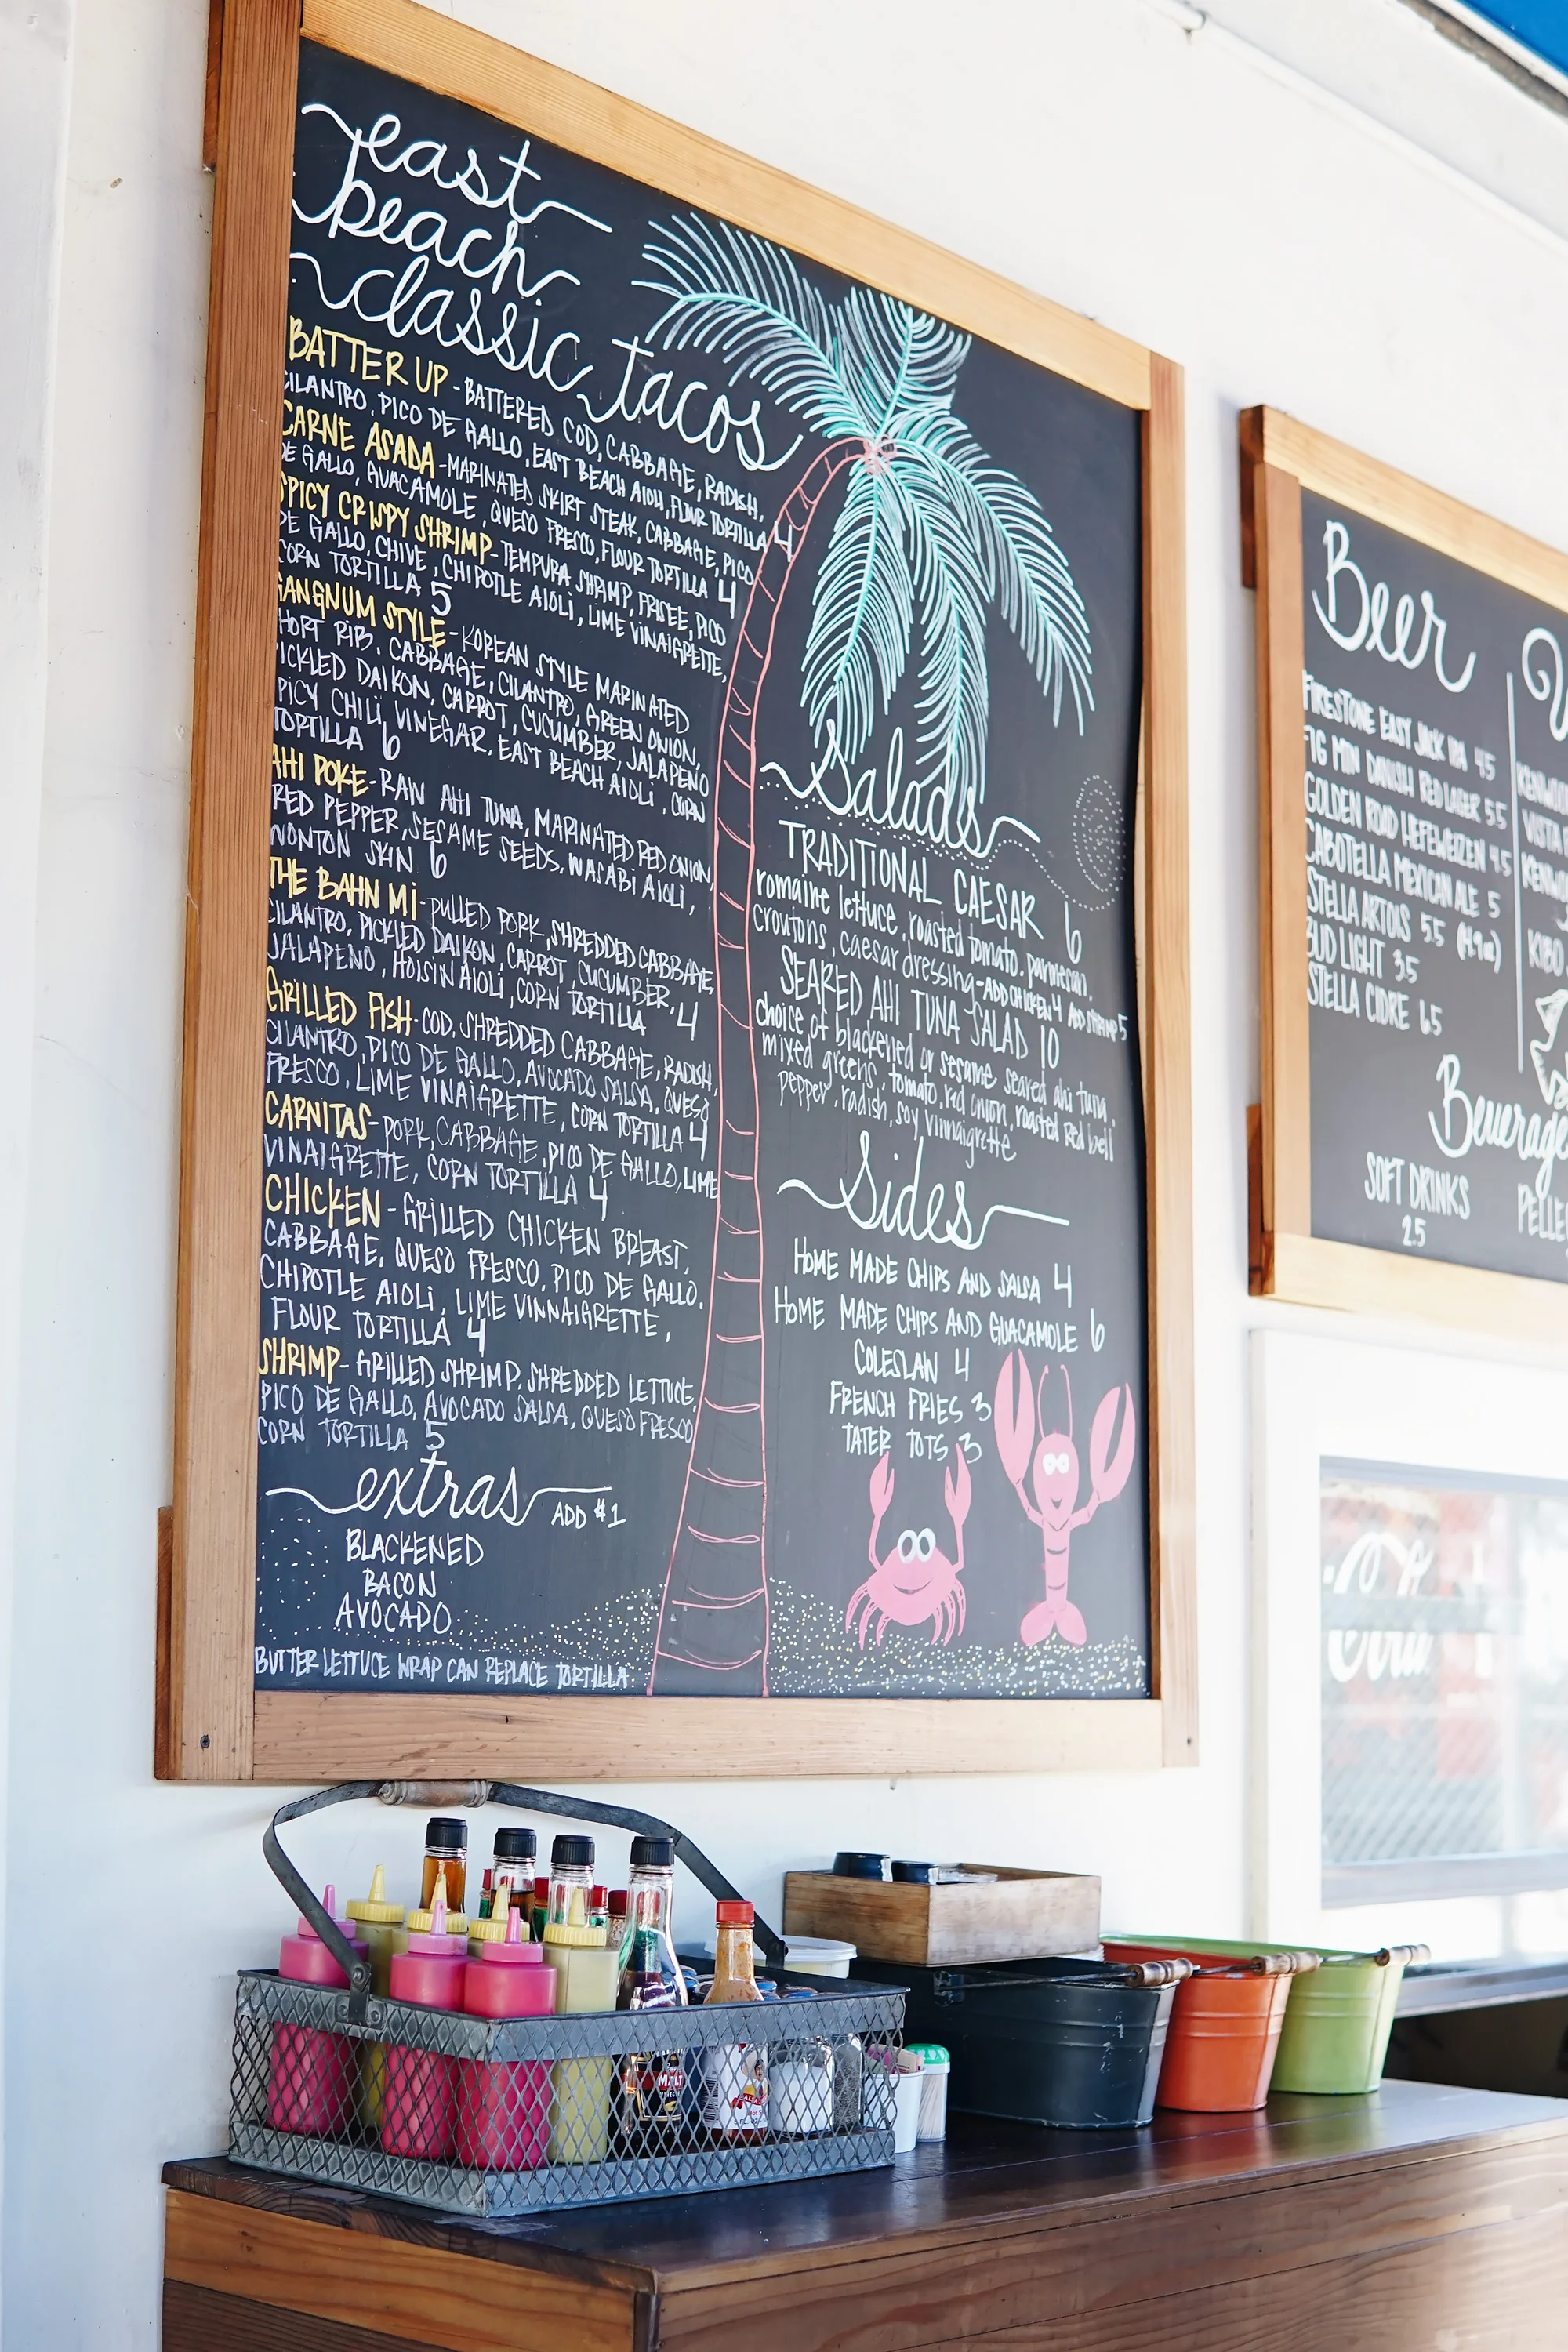 east
beach
classic tacos
BATTER UP - BATTERED COD, CABBAGE, RADISH,
CILANTRO, PICO DE GALLO, EAST BEACH AIOLI, FLOUR TORTILLA 4
CARNE ASADA - MARINATED SKIRT STEAK, CABBAGE, PICO
DE GALLO, GUACAMOLE, QUESO FRESCO, FLOUR TORTILLA 4
SPICY CRISPY SHRIMP - TEMPURA SHRIMP, FRISEE, PICO
DE GALLO, CHIVE, CHIPOTLE AIOLI, LIME VINAIGRETTE,
CORN TORTILLA 5
GANGNUM STYLE - KOREAN STYLE MARINATED
SHORT RIB, CABBAGE, CILANTRO, GREEN ONION,
PICKLED DAIKON, CARROT, CUCUMBER, JALAPENO
SPICY CHILI VINEGAR, EAST BEACH AIOLI, CORN
TORTILLA 6
AHI POKE - RAW AHI TUNA, MARINATED RED ONION,
RED PEPPER, SESAME SEEDS, WASABI AIOLI,
WONTON SKIN 6
THE BAHN MI - PULLED PORK, SHREDDED CABBAGE,
CILANTRO, PICKLED DAIKON, CARROT, CUCUMBER,
JALAPENO, HOISIN AIOLI, CORN TORTILLA 4
GRILLED FISH - COD, SHREDDED CABBAGE, RADISH,
CILANTRO, PICO DE GALLO, AVOCADO SALSA, QUESO
FRESCO, LIME VINAIGRETTE, CORN TORTILLA 4
CARNITAS - PORK, CABBAGE, PICO DE GALLO, LIME
VINAIGRETTE, CORN TORTILLA 4
CHICKEN - GRILLED CHICKEN BREAST,
CABBAGE, QUESO FRESCO, PICO DE GALLO,
CHIPOTLE AIOLI, LIME VINNAIGRETTE,
FLOUR TORTILLA 4
SHRIMP - GRILLED SHRIMP, SHREDDED LETTUCE,
PICO DE GALLO, AVOCADO SALSA, QUESO FRESCO
CORN TORTILLA 5
extras ADD $1
BLACKENED
BACON
AVOCADO
BUTTER LETTUCE WRAP CAN REPLACE TORTILLA
Salads
TRADITIONAL CAESAR 6
romaine lettuce, roasted tomato, parmesan,
croutons, caesar dressing - ADD CHICKEN 4 ADD SHRIMP 5
SEARED AHI TUNA SALAD 10
choice of blackened or sesame seared ahi tuna,
mixed greens, tomato, red onion, roasted red bell
pepper, radish, soy vinnaigrette
Sides
HOME MADE CHIPS AND SALSA 4
HOME MADE CHIPS AND GUACAMOLE 6
COLESLAW 4
FRENCH FRIES 3
TATER TOTS 3
Beer
FIRESTONE EASY JACK IPA 4.5
FIG MTN DANISH RED LAGER 5.5
GOLDEN ROAD HEFEWEIZEN 4.5
CABOTELLA MEXICAN ALE 5
STELLA ARTOIS 5.5
BUD LIGHT 3.5
STELLA CIDRE 6.5
SOFT DRINKS
2.5
MALT